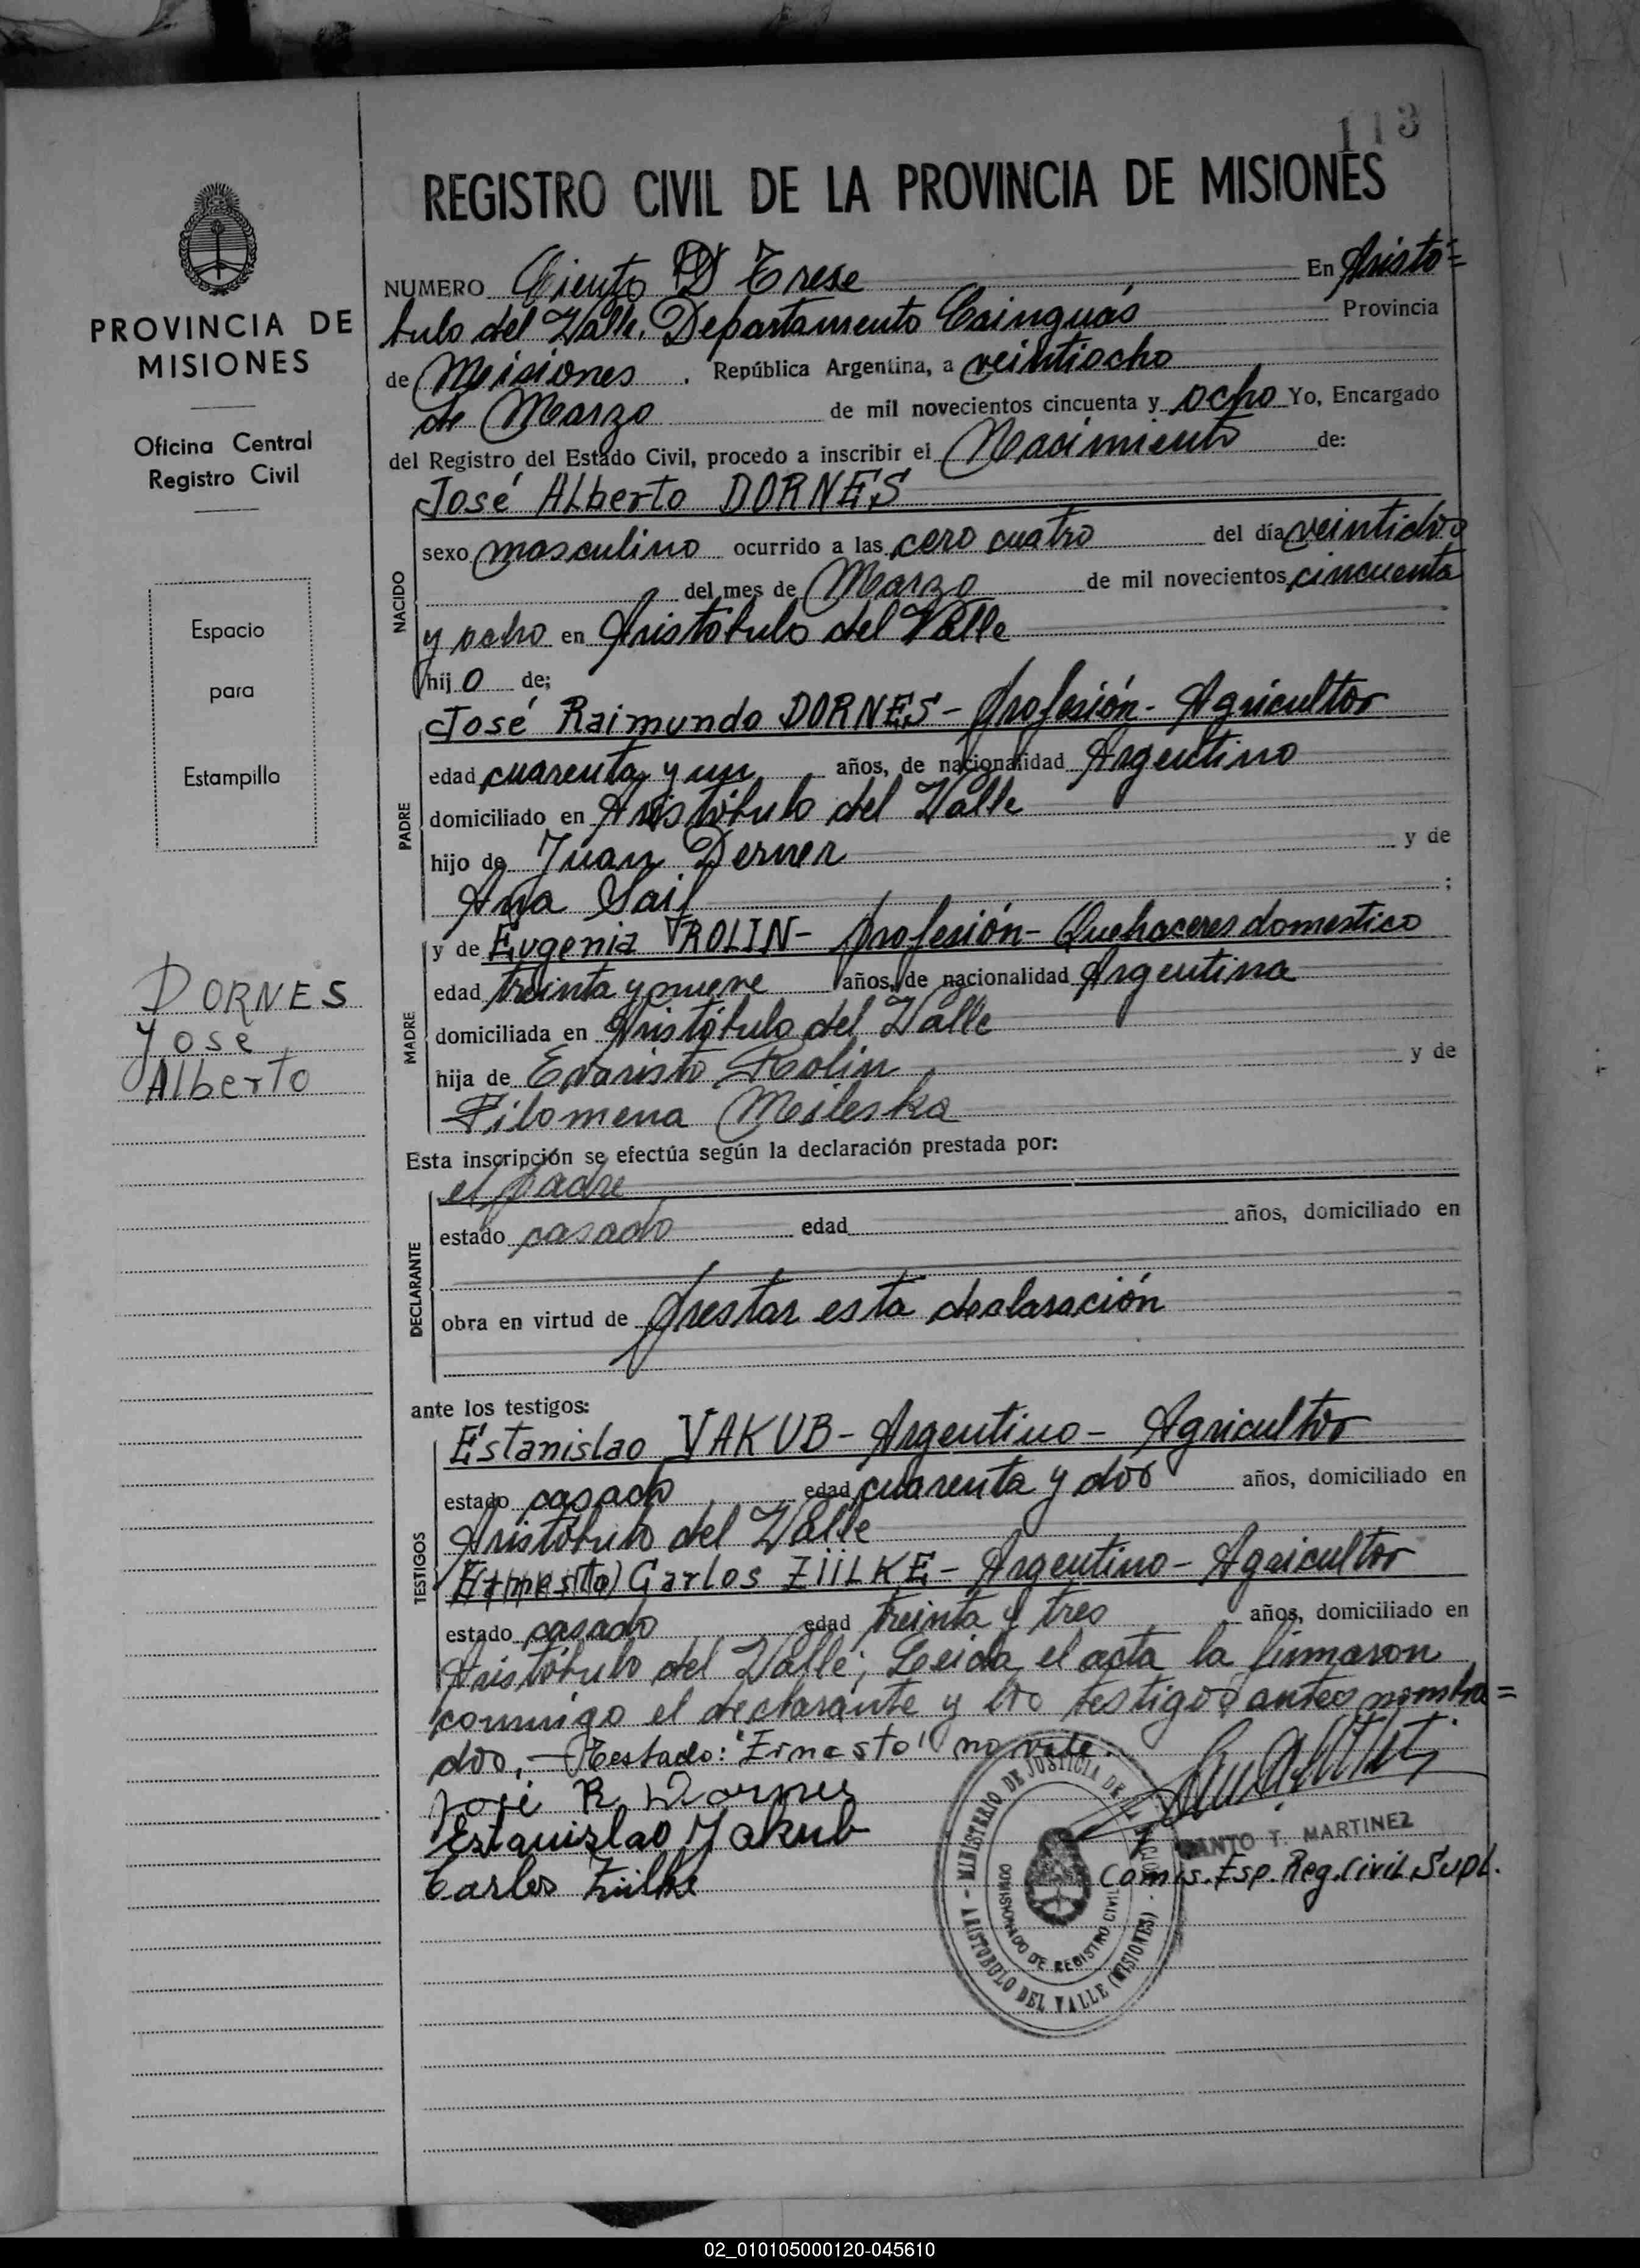 113
REGISTRO CIVIL DE LA PROVINCIA DE MISIONES
NUMERO Ciento D Trese En Aristó=
bulo del Valle. Departamento Cainguás Provincia
de Misiones. República Argentina, a veintiocho
de Marzo de mil novecientos cincuenta y ocho Yo, Encargado
del Registro del Estado Civil, procedo a inscribir el Nacimiento de:
José Alberto DORNES
NACIDO
sexo masculino ocurrido a las cero cuatro del día
del mes de Marzo de mil novecientos cincuenta
y ocho en Aristóbulo del Valle
hijo de;
PADRE
José Raimundo DORNES - Profesión - Agricultor
edad cuarenta y un años, de nacionalidad Argentino
domiciliado en Aristóbulo del Valle
hijo de Juan Derner y de
Ana Saif ;
MADRE
y de Eugenia ROLIN - Profesión - Quehaceres domestico
edad treinta y nueve años, de nacionalidad Argentina
domiciliada en Aristóbulo del Valle
hija de Evaristo Rolin y de
Filomena Meileska
Esta inscripción se efectúa según la declaración prestada por:
DECLARANTE
el padre
estado casado edad años, domiciliado en
obra en virtud de prestar esta declaración
ante los testigos:
TESTIGOS
Estanislao YAKUB - Argentino - Agricultor
estado casado edad cuarenta y dos años, domiciliado en
Aristóbulo del Valle
(Ernesto) Carlos ZÜLKE - Argentino - Agricultor
estado casado edad treinta y tres años, domiciliado en
Aristóbulo del Valle; Leida el acta la firmaron
conmigo el declarante y los testigos antes nombra=
dos. - Testado: "Ernesto" no vale.
José R. Dornes
Estanislao Yakub
Carlos Zülke
SANTO T. MARTINEZ
Comis. Esp. Reg. Civil Supl.
MINISTERIO DE JUSTICIA DE LA NACION
ARISTOBULO DEL VALLE (MISIONES)
COMISIONADO DE REGISTRO CIVIL
PROVINCIA DE
MISIONES
Oficina Central
Registro Civil
Espacio
para
Estampilla
DORNES
José
Alberto
02_010105000120-045610